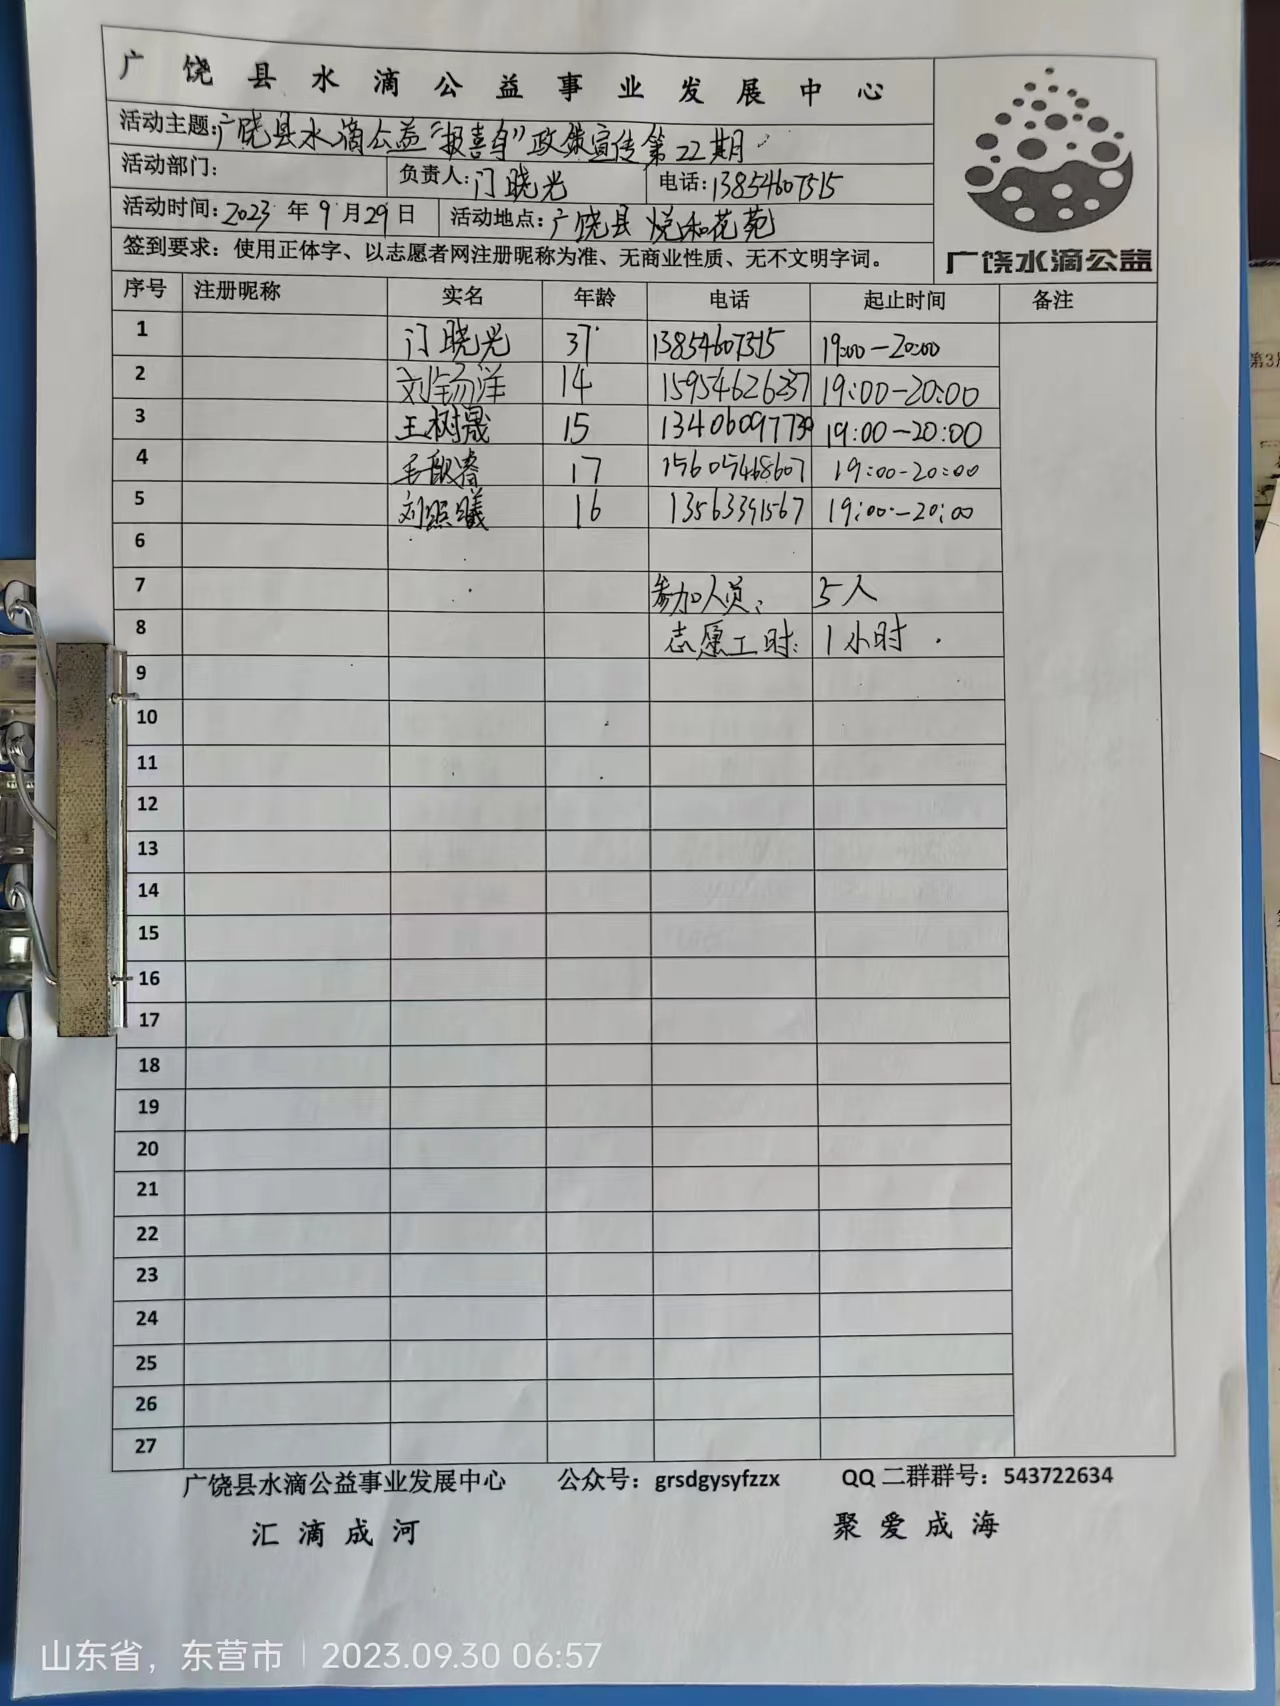 广饶县水滴公益事业发展中心
活动主题:广饶县水滴公益“报喜鸟”政策宣传第22期
活动部门: 负责人:门晓光 电话:13854607515
活动时间:2023年9月29日 活动地点:广饶县 悦和花苑
签到要求：使用正体字、以志愿者网注册昵称为准、无商业性质、无不文明字词。
广饶水滴公益
序号 注册昵称 实名 年龄 电话 起止时间 备注
1 门晓光 37 13854607515 19:00-20:00
2 14 15954626237 19:00-20:00
3 王树晟 15 13406097739 19:00-20:00
4 17 15605468607 19:00-20:00
5 刘照曦 16 13563391567 19:00-20:00
6
7 参加人员: 5人
8 志愿工时: 1小时.
9
10
11
12
13
14
15
16
17
18
19
20
21
22
23
24
25
26
27
广饶县水滴公益事业发展中心 公众号：grsdgysyfzzx QQ二群群号：543722634
汇滴成河 聚爱成海
山东省，东营市 | 2023.09.30 06:57
第3